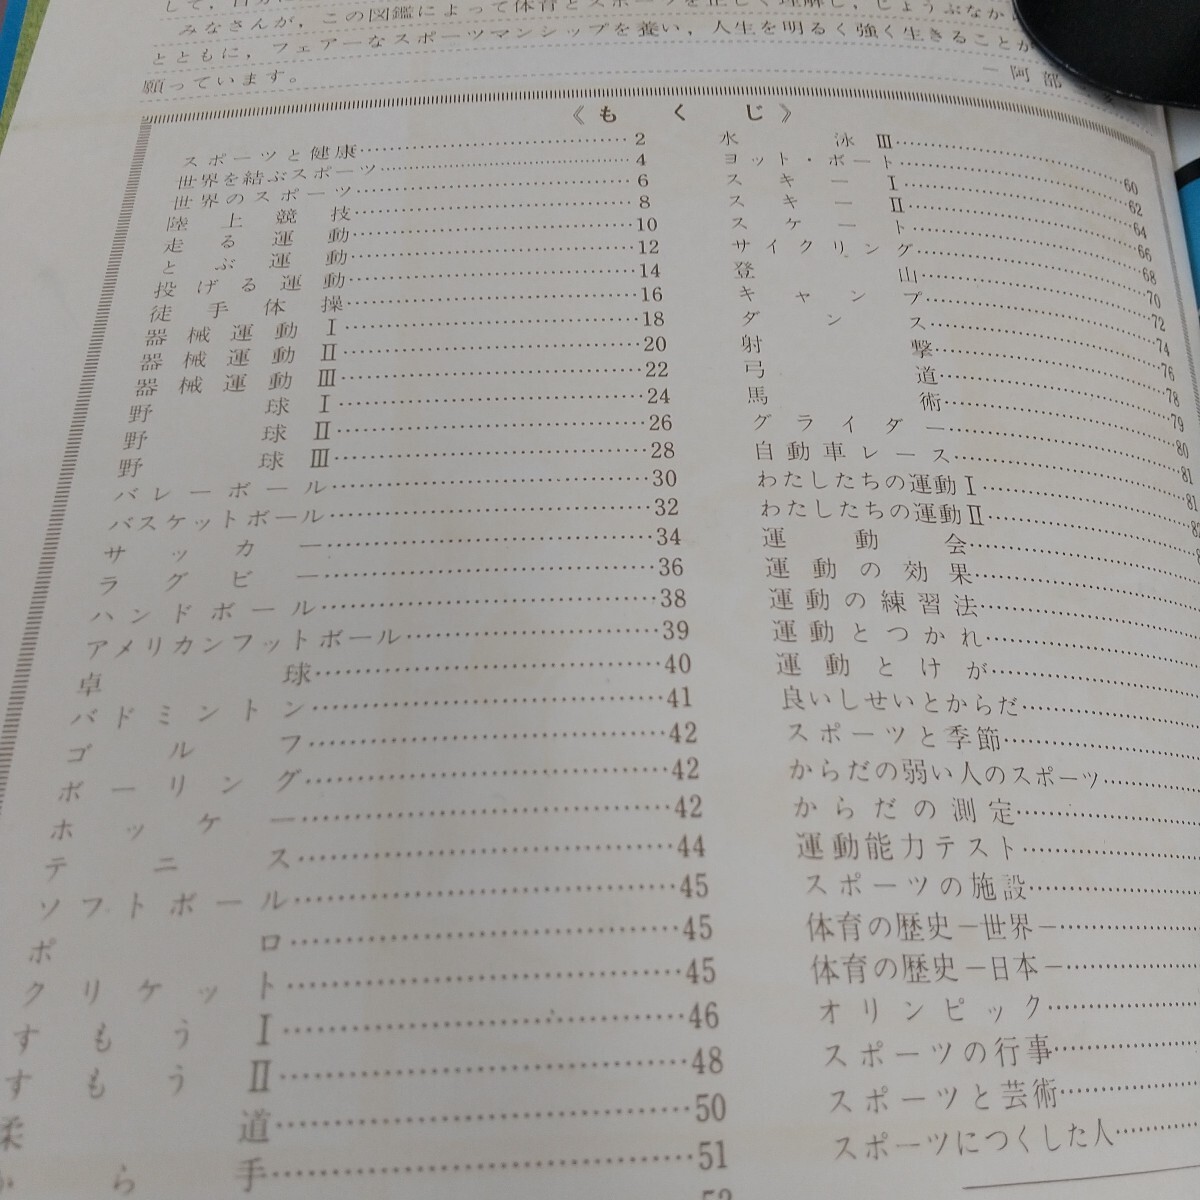 みなさんが，この図鑑によって体育とスポーツを正しく理解し，じょうぶなから
とともに，フェアーなスポーツマンシップを養い，人生を明るく強く生きることが
願っています。
－阿部
《もくじ》
スポーツと健康……2
世界を結ぶスポーツ……4
世界のスポーツ……6
陸上競技……8
走る運動……10
とぶ運動……12
投げる運動……14
徒手体操……16
器械運動Ⅰ……18
器械運動Ⅱ……20
器械運動Ⅲ……22
野球Ⅰ……24
野球Ⅱ……26
野球Ⅲ……28
バレーボール……30
バスケットボール……32
サッカー……34
ラグビー……36
ハンドボール……38
アメリカンフットボール……39
卓球……40
バドミントン……41
ゴルフ……42
ボーリング……42
ホッケー……42
テニス……44
ソフトボール……45
ポロ……45
クリケット……45
すもうⅠ……46
すもうⅡ……48
柔道……50
から手……51
水泳Ⅲ……60
ヨット・ボート……62
スキーⅠ……64
スキーⅡ……66
スケート……68
サイクリング……70
登山……72
キャンプ……74
ダンス……76
射撃……78
弓道……79
馬術……80
グライダー……81
自動車レース……81
わたしたちの運動Ⅰ……82
わたしたちの運動Ⅱ……
運動会……
運動の効果……
運動の練習法……
運動とつかれ……
運動とけが……
良いしせいとからだ……
スポーツと季節……
からだの弱い人のスポーツ……
からだの測定……
運動能力テスト……
スポーツの施設……
体育の歴史－世界－……
体育の歴史－日本－……
オリンピック……
スポーツの行事……
スポーツと芸術……
スポーツにつくした人……